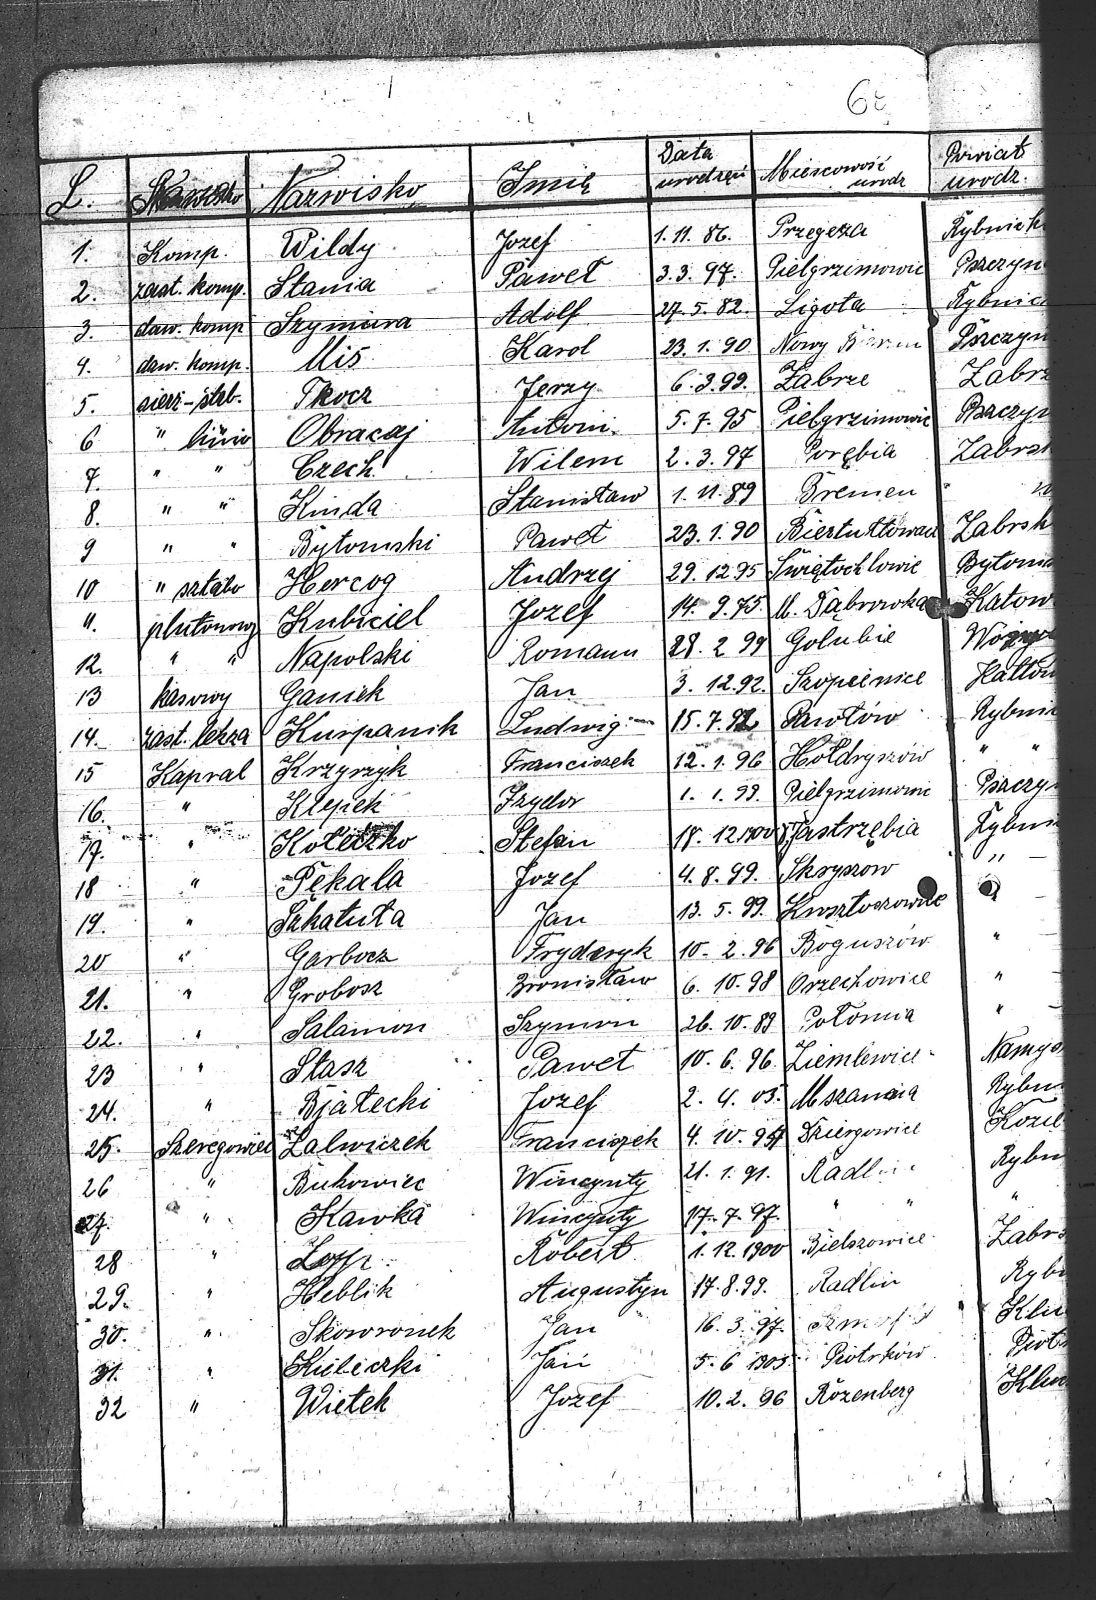 L. Nazwisko Imię Data urodzeń Miescowość urodz Powiat urodz.
1. Komp. Wildy Jozef 1. 11. 86. Przegęza Rybnick
2. zast. komp. Stania Paweł 3. 3. 97. Pielgrzimowic Pszczyn
3. daw. komp Szymura Adolf 27. 5. 82. Ligota Rybnic
4. daw. komp. Miś Karol 23. 1. 90 Nowy Pszczyn
5. sierż-štab. Tkocz Jerzy 6. 3. 99. Zabrze Zabrz
6 " Obracaj Antoni. 5. 7. 95 Pielgrzimowic Pszczyn
7. " " Czech Wilem 2. 3. 97 Porębia Zabrsk
8. " " Kinda Stanisław 1. 11. 89 Bremen "
9 " " Bytomski Paweł 23. 1. 90 Zabrsk
10 " sztabo Hercog Andrzej 29. 12 95 Świętochlowic Bytom
11. plutonowy Kubiciel Jozef 14. 9. 75. M. Dąbrowka Katow
12. " " Napolski Romann 28. 2 99 Golubie
13 kasowy Ganick Jan 3. 12. 92. Szopienice Kattow
14. zast. lekza Kurpanik Ludwig 15. 7. 92 Pawłów Rybnic
15 Kapral Krzyrzyk Franciszek 12. 1. 96 Hołdryszów " "
16. " Klepek Izydor 1. 1. 99. Pielgrzimowic Pszczyn
17. " Koteczko Stefan 18. 12 1900 Jastrzębia Rybni
18 " Pękala Jozef 4. 8. 99. Skryszow "
19. " Szkatuła Jan 13. 5. 99. "
20 " Garbocz Fryderyk 10. 2. 96 Boguszów "
21. " Grobosz Bronisław 6. 10. 98 Orzechowice "
22. " Salamon Szymon 26. 10. 89 Połomia "
23 " Stasz Paweł 10. 6. 96. Ziemlewice Namys
24. " Bjałecki Jozef 2. 4. 03. Mszanaia Rybn
25. Szeregowiec Zalwiczek Franciszek 4. 10. 94 Dziergowice Kozie
26 " Bukowiec Wincynty 21. 1. 91. Radlin Rybn
27. " Kawka Wincynty 17. 7. 97. " " "
28 " Robert 1. 12. 1900 Bielszowice Zabrs
29. " Heblik Augustyn 17. 8. 99. Radlin Ryb
30. " Skowronek Jan 16. 3. 97. Klu
31. " Kuliczki Jan 5. 6 1905 Piotrków Piot
32 " Wietek Jozef 10. 2. 96 Rozenberg Klu